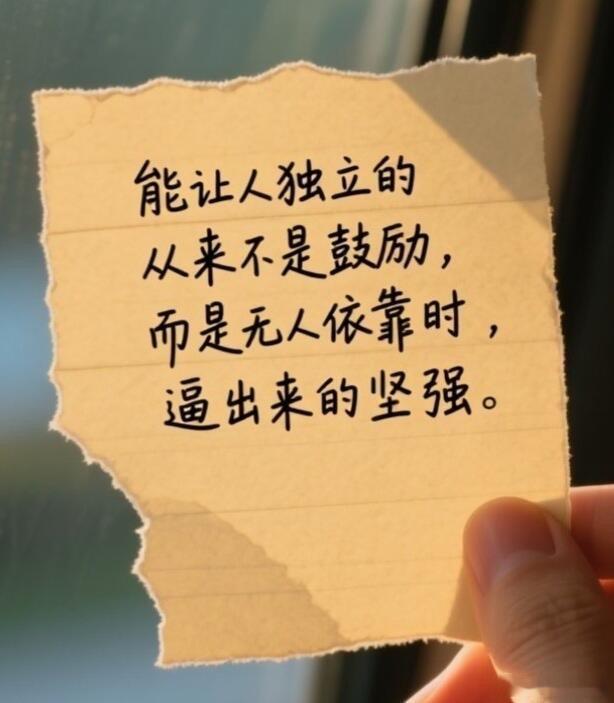 能让人独立的
从来不是鼓励，
而是无人依靠时，
逼出来的坚强。